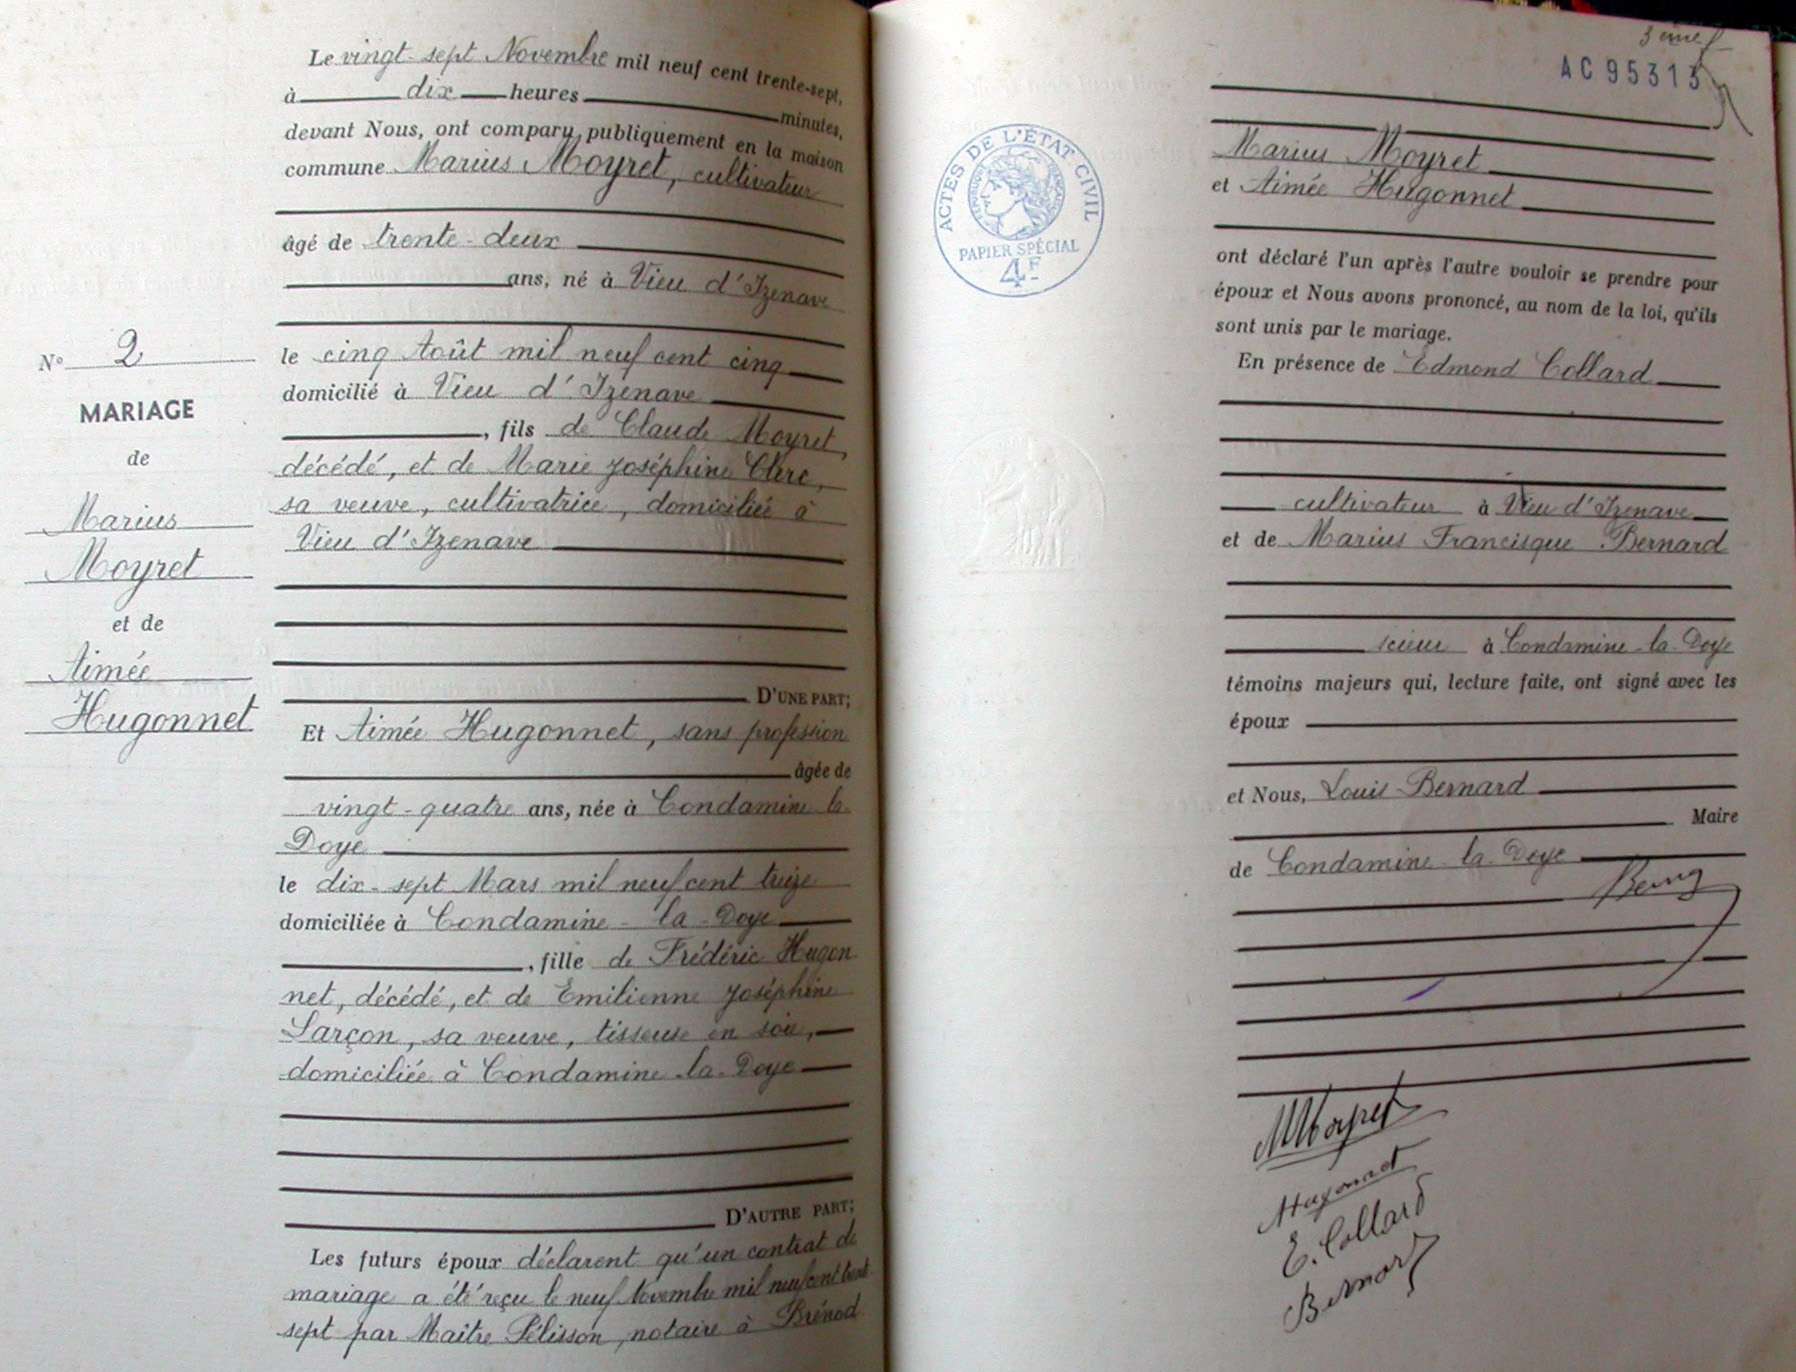 Le vingt-sept Novembre mil neuf cent trente-sept,
à dix heures minutes,
devant Nous, ont comparu publiquement en la maison
commune Marius Moyret, cultivateur
âgé de trente-deux
ans, né à Vieu d'Izenave
le cinq Août mil neuf cent cinq
domicilié à Vieu d'Izenave
, fils de Claude Moyret,
décédé, et de Marie Joséphine Clerc,
sa veuve, cultivatrice, domiciliée à
Vieu d'Izenave
D'UNE PART;
Et Aimée Hugonnet, sans profession
âgée de
vingt-quatre ans, née à Condamine la
Doye
le dix-sept Mars mil neuf cent treize
domiciliée à Condamine-la-Doye
, fille de Frédéric Hugon
net, décédé, et de Emilienne Joséphine
Larçon, sa veuve, tisseuse en soie,
domiciliée à Condamine-la-Doye
D'AUTRE PART;
Les futurs époux déclarent qu'un contrat de
mariage a été reçu le neuf Novembre mil neuf cent trente
sept par Maître Pélisson, notaire à Brénod
N° 2
MARIAGE
de
Marius
Moyret
et de
Aimée
Hugonnet
AC 95313
ACTES DE L'ÉTAT CIVIL
PAPIER SPÉCIAL
4F
Marius Moyret
et Aimée Hugonnet
ont déclaré l'un après l'autre vouloir se prendre pour
époux et Nous avons prononcé, au nom de la loi, qu'ils
sont unis par le mariage.
En présence de Edmond Collard
cultivateur à Vieu d'Izenave
et de Marius Francisque Bernard
scieur à Condamine-la-Doye
témoins majeurs qui, lecture faite, ont signé avec les
époux
et Nous, Louis Bernard
Maire
de Condamine-la-Doye
MMoyret
Hugonnet
E. Collard
Bernard